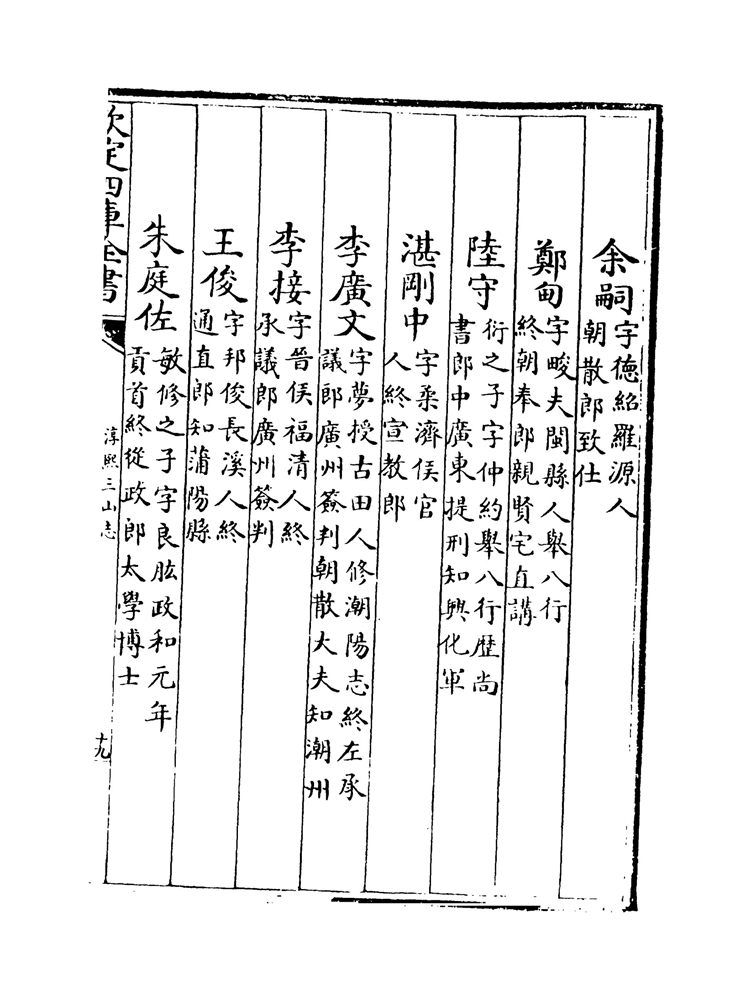 余嗣字德紹羅源人
朝散郎致仕
鄭甸字畯夫閩縣人舉八行
終朝奉郎親賢宅直講
陸守衍之子字仲約舉八行歷尚
書郎中廣東提刑知興化軍
湛剛中字柔濟侯官
人終宣教郎
李廣文字夢授古田人修潮陽志終左承
議郎廣州簽判朝散大夫知潮州
李接字晉侯福清人終
承議郎廣州簽判
王俊字邦俊長溪人終
通直郎知蒲陽縣
朱庭佐敏修之子字良肱政和元年
貢首終從政郎太學博士
欽定四庫全書
淳熙三山志
十九